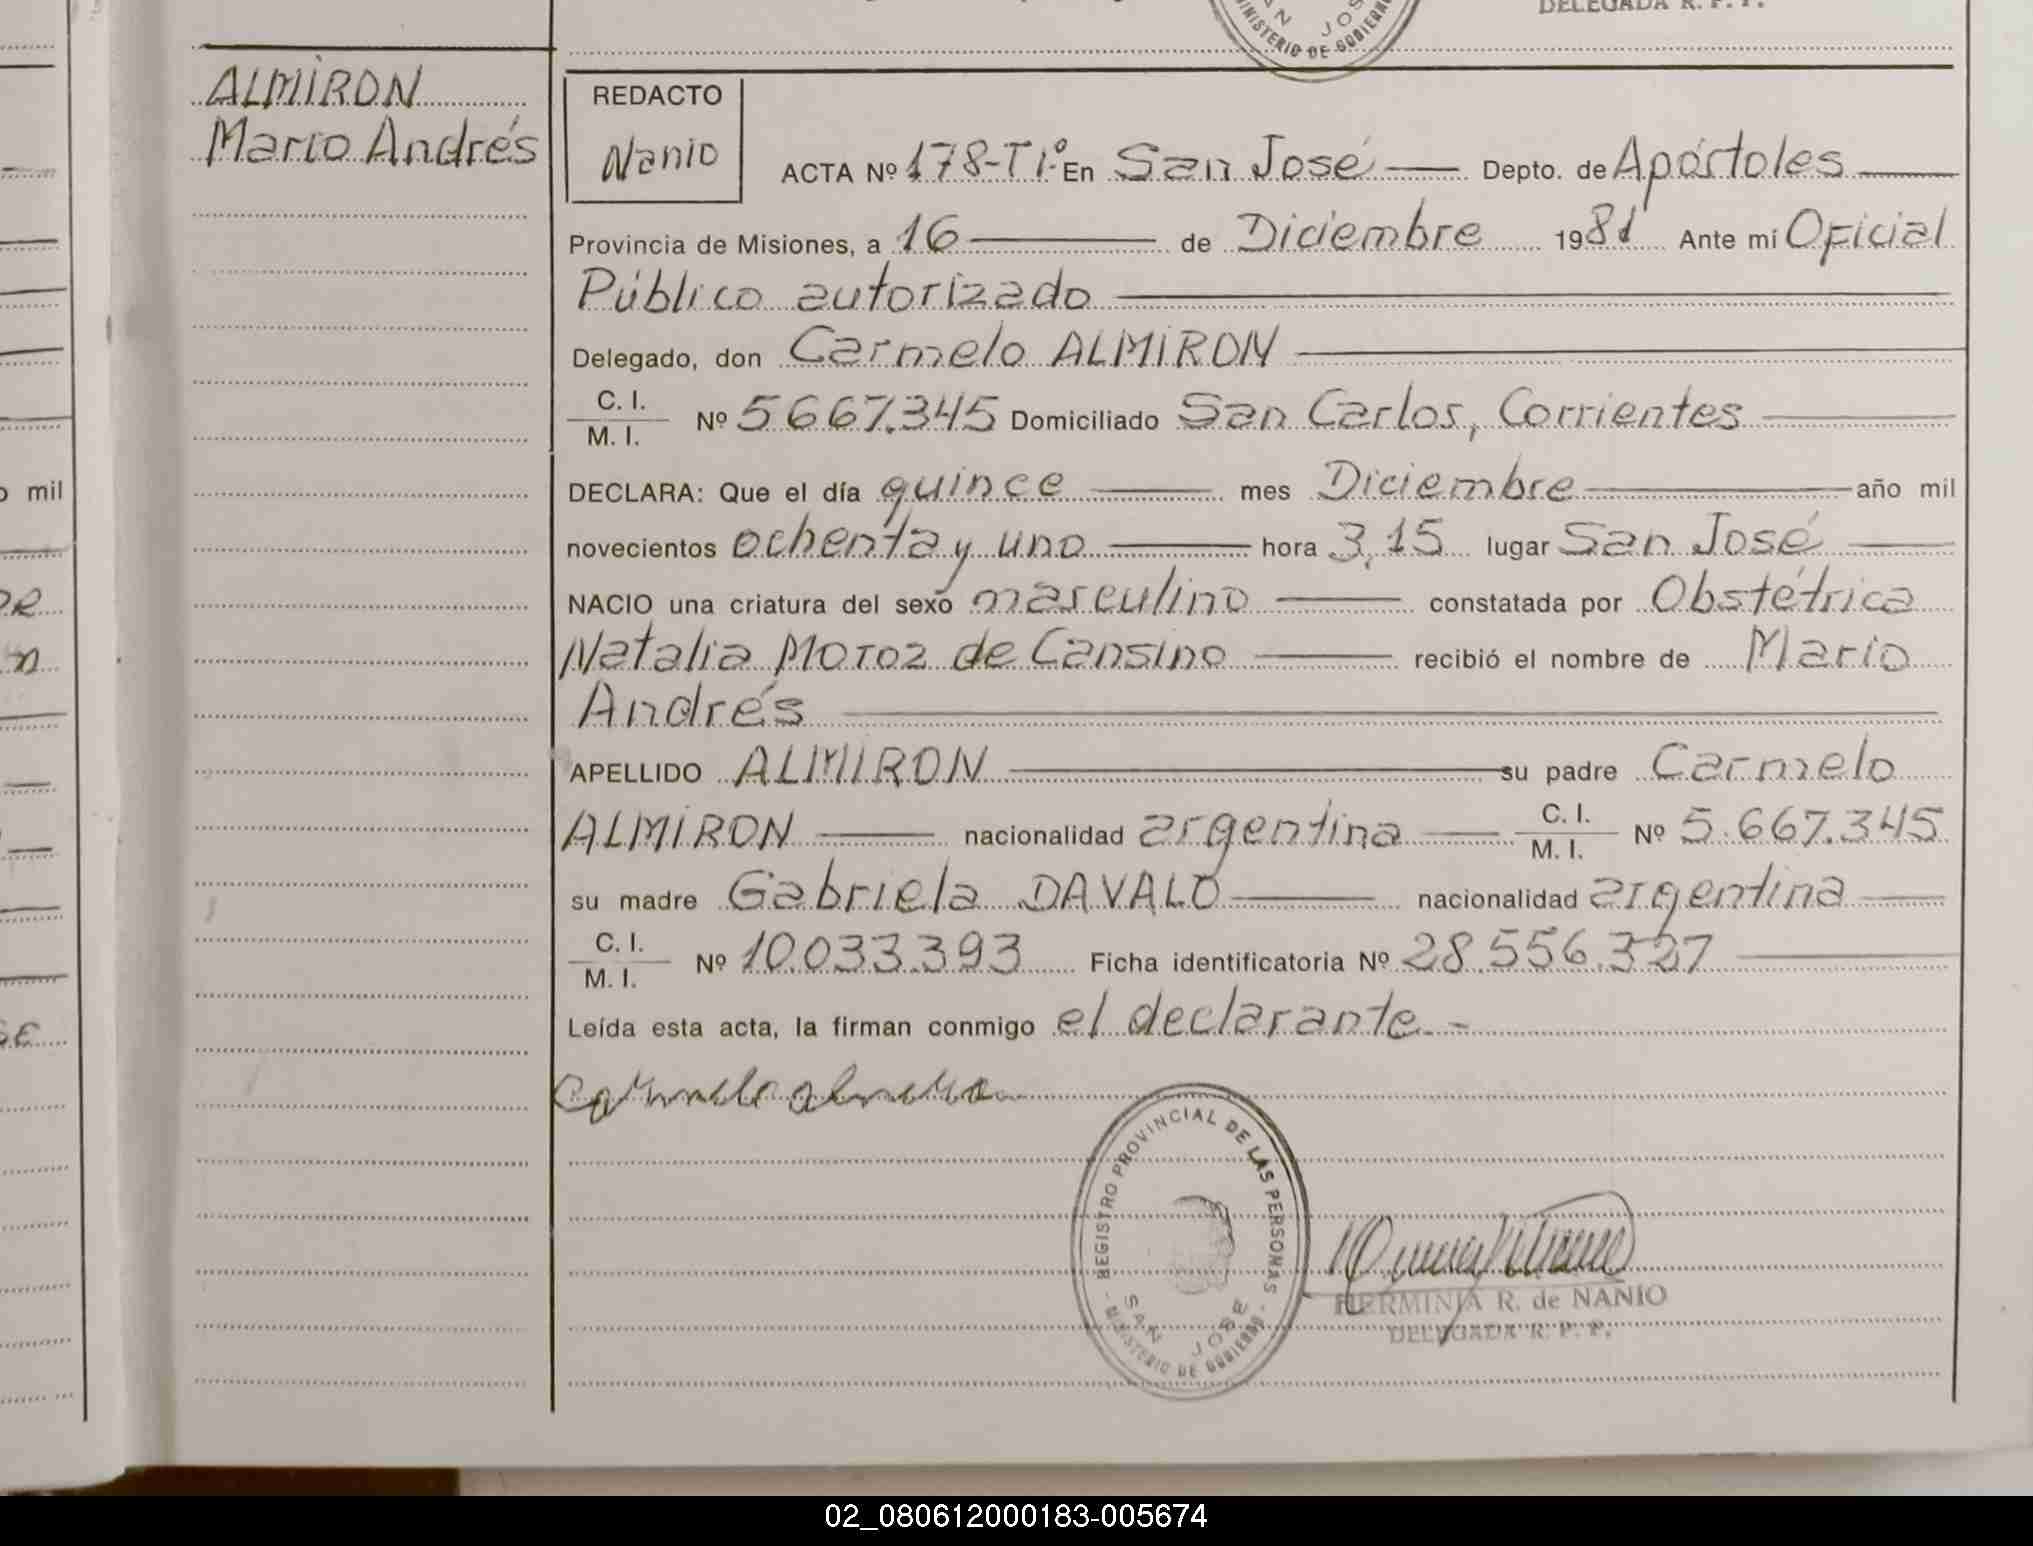 DELEGADA R. P. P.
SAN JOSE
MINISTERIO DE GOBIERNO
ALMIRON
Mario Andrés
REDACTO
Nanio
ACTA Nº 178-T1º En San José Depto. de Apóstoles
Provincia de Misiones, a 16 de Diciembre 1981 Ante mi Oficial
Público autorizado
Delegado, don Carmelo ALMIRON
C. I.
M. I. Nº 5667.345 Domiciliado San Carlos, Corrientes
DECLARA: Que el día quince mes Diciembre año mil
novecientos ochenta y uno hora 3,15 lugar San José
NACIO una criatura del sexo masculino constatada por Obstétrica
Natalia Moroz de Cansino recibió el nombre de Mario
Andrés
APELLIDO ALMIRON su padre Carmelo
ALMIRON nacionalidad argentina C. I.
M. I. Nº 5.667.345
su madre Gabriela DAVALO nacionalidad argentina
C. I.
M. I. Nº 10.033.393 Ficha identificatoria Nº 28.556.327
Leída esta acta, la firman conmigo el declarante.-
REGISTRO PROVINCIAL DE LAS PERSONAS
SAN JOSE
MINISTERIO DE GOBIERNO
HERMINIA R. de NANIO
DELEGADA R. P. P.
o mil
02_080612000183-005674